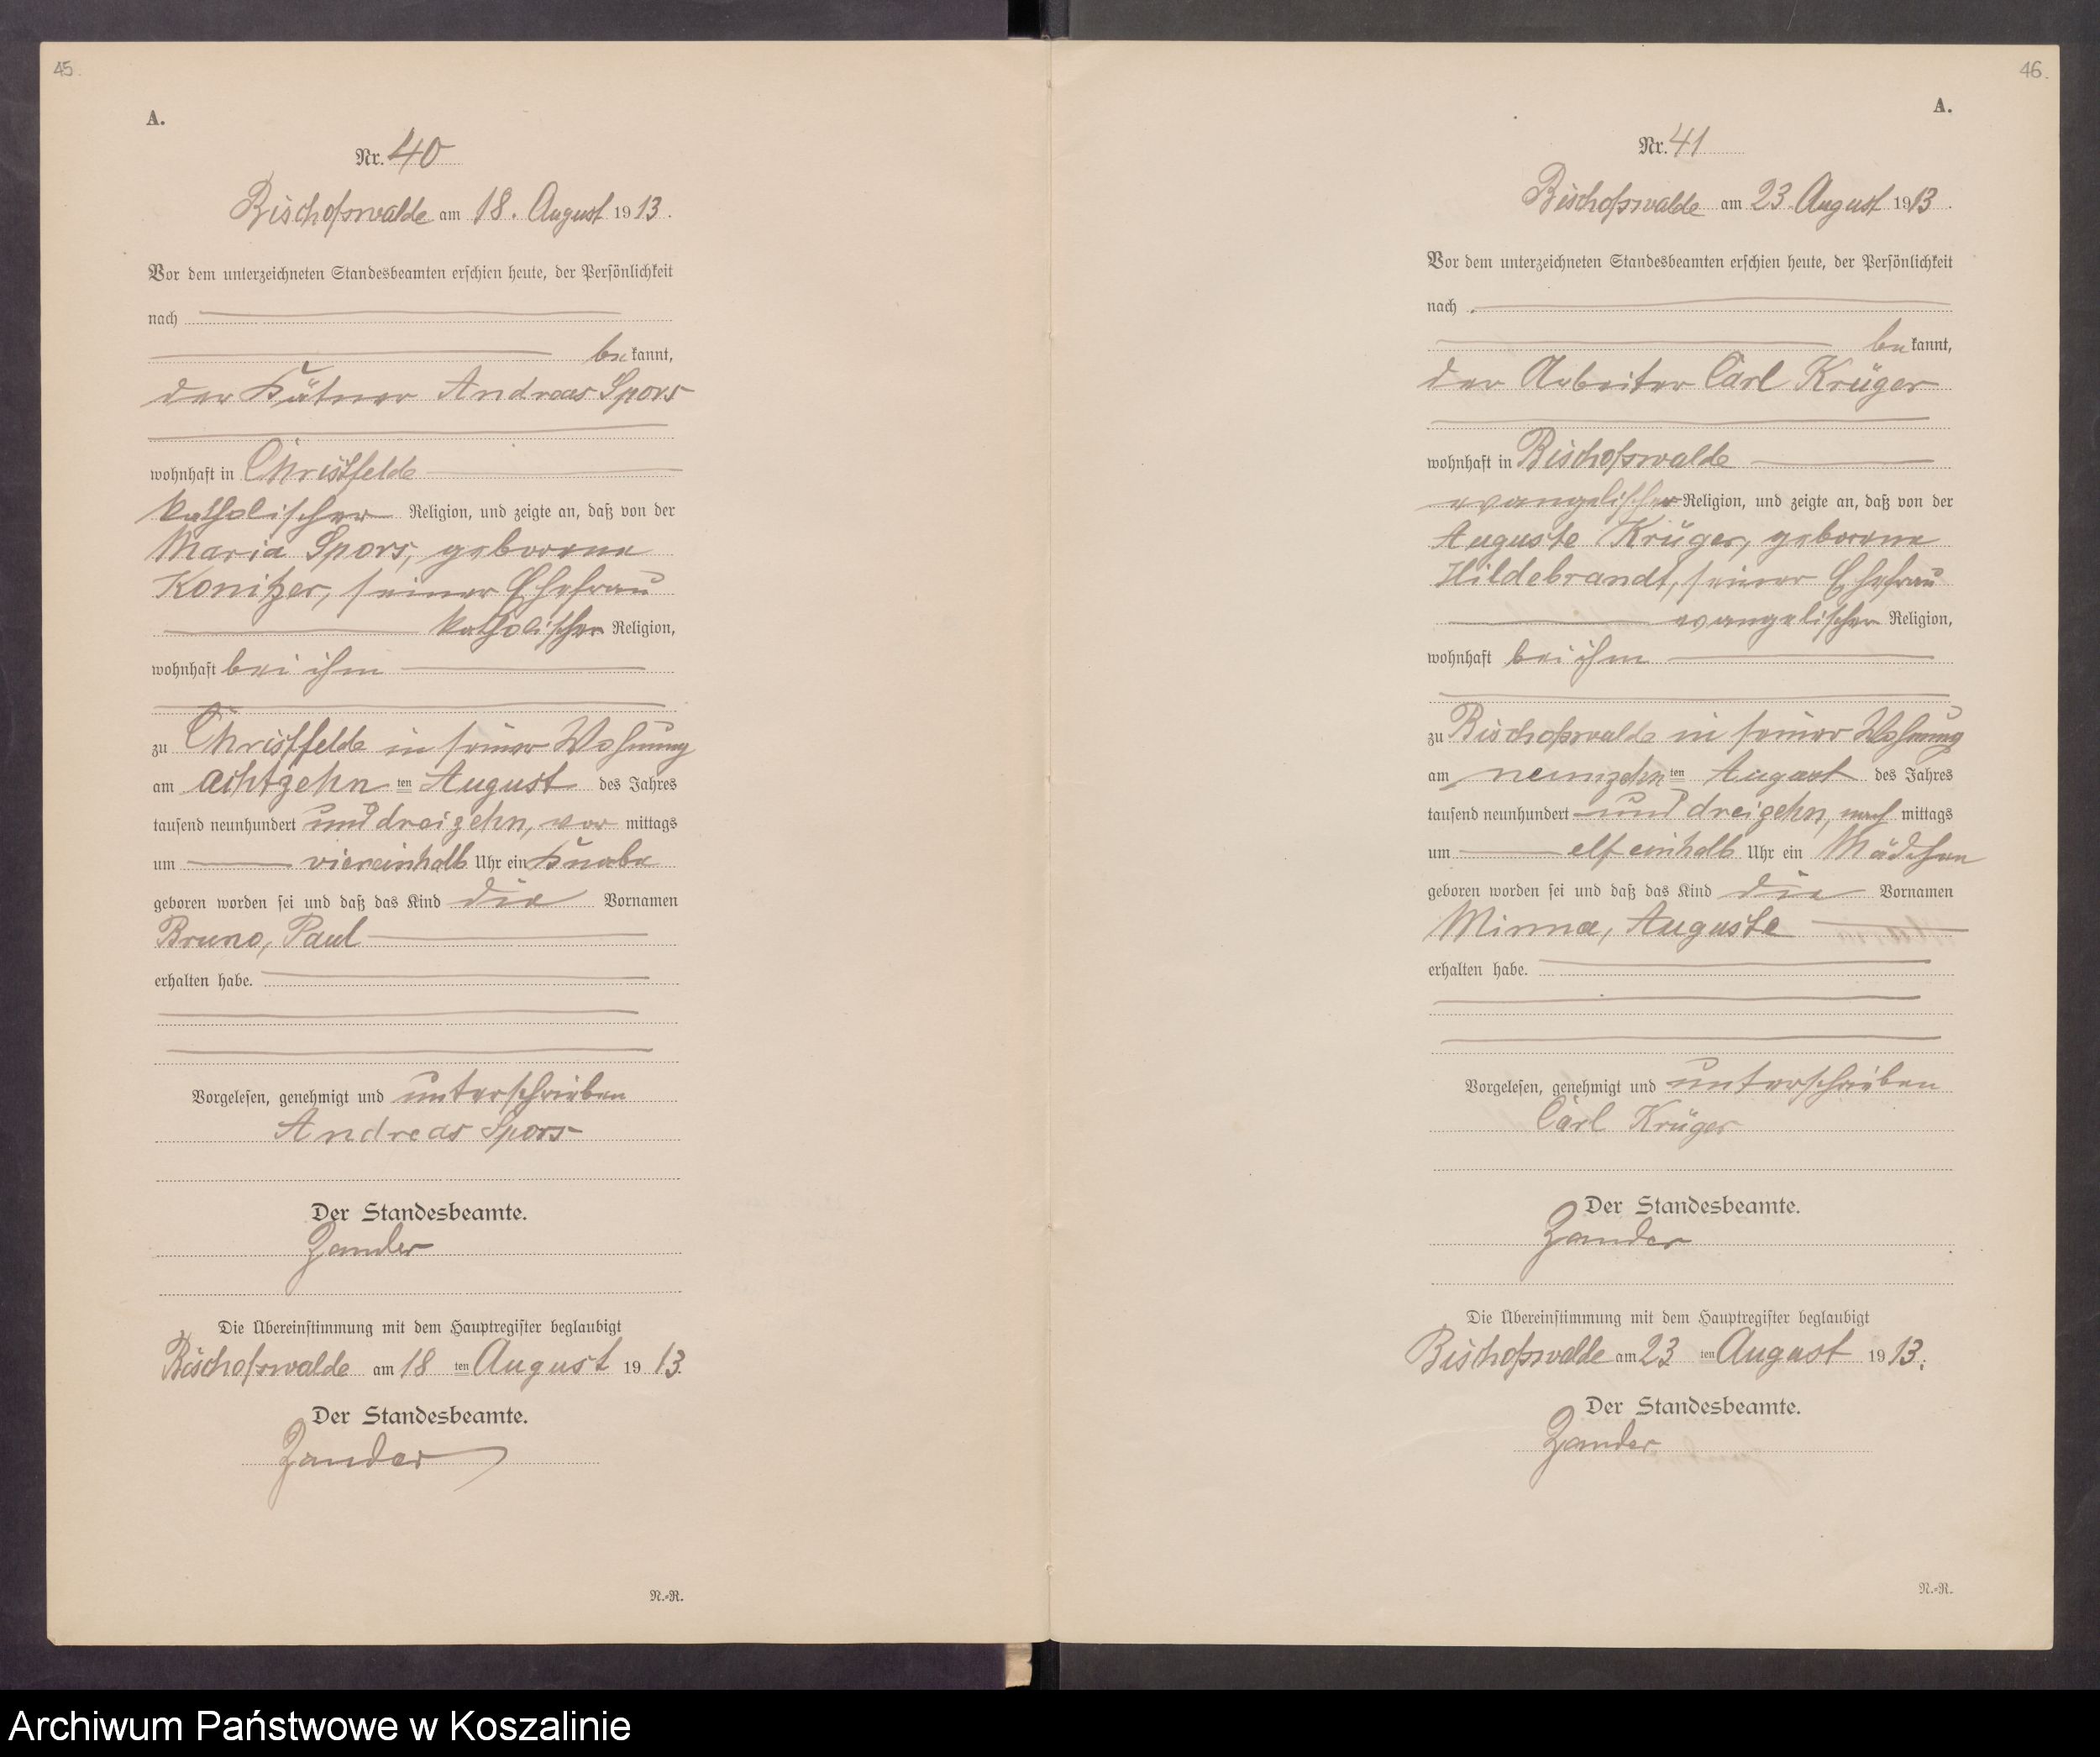 45.
A.
Nr. 40
Bischofswalde am 18. August 1913.
Vor dem unterzeichneten Standesbeamten erschien heute, der Persönlichkeit
nach
bekannt,
der Kätner Andreas Spors
wohnhaft in Christfelde
katholischer Religion, und zeigte an, daß von der
Maria Spors, geborene
Konitzer, seiner Ehefrau
katholischer Religion,
wohnhaft bei ihm
zu Christfelde in seiner Wohnung
am achtzehn ten August des Jahres
tausend neunhundert und dreizehn, vor mittags
um viereinhalb Uhr ein Knabe
geboren worden sei und daß das Kind die Vornamen
Bruno, Paul
erhalten habe.
Vorgelesen, genehmigt und unterschrieben
Andreas Spors
Der Standesbeamte.
Zander
Die Übereinstimmung mit dem Hauptregister beglaubigt
Bischofswalde am 18 ten August 1913.
Der Standesbeamte.
Zander
N.-R.
46.
A.
Nr. 41
Bischofswalde am 23. August 1913.
Vor dem unterzeichneten Standesbeamten erschien heute, der Persönlichkeit
nach
bekannt,
der Arbeiter Carl Krüger
wohnhaft in Bischofswalde
evangelischer Religion, und zeigte an, daß von der
Auguste Krüger, geborene
Hildebrandt, seiner Ehefrau
evangelischer Religion,
wohnhaft bei ihm
zu Bischofswalde in seiner Wohnung
am neunzehn ten August des Jahres
tausend neunhundert und dreizehn, nach mittags
um elf einhalb Uhr ein Mädchen
geboren worden sei und daß das Kind die Vornamen
Minna, Auguste
erhalten habe.
Vorgelesen, genehmigt und unterschrieben
Carl Krüger
Der Standesbeamte.
Zander
Die Übereinstimmung mit dem Hauptregister beglaubigt
Bischofswalde am 23 ten August 1913.
Der Standesbeamte.
Zander
N.-R.
Archiwum Państwowe w Koszalinie